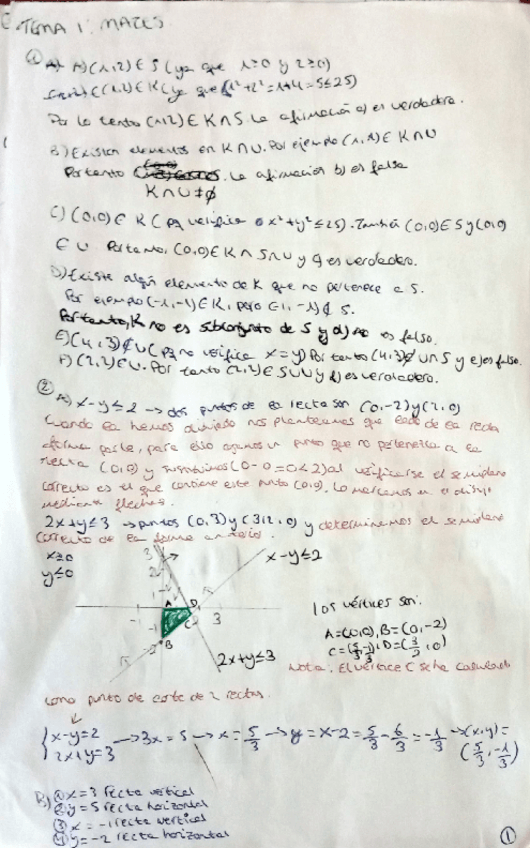 TEMA 1: MATES
① A) (1,2) ∈ S (ya que 1≥0 y 2≥0)
(1,2) ∈ K (ya que 1²+2²=1+4=5≤25)
Por lo tanto (1,2) ∈ K∩S. La afirmación a) es verdadera.
B) Existen elementos en K∩U. Por ejemplo (1,1) ∈ K∩U
Por tanto La afirmacion b) es falsa
K∩U≠∅
C) (0,0) ∈ K ( verifica x²+y²≤25). También (0,0) ∈ S y (0,0)
∈ U Por tanto, (0,0) ∈ K∩S∩U y c) es verdadero.
D) Existe algún elemento de K que no pertenece a S.
Por ejemplo (-1,-1) ∈ K, pero (-1,-1) ∉ S.
Por tanto, K no es subconjunto de S y d) es falso.
E) (4,3) ∉ U ( no verifica x=y) Por tanto (4,3) ∉ U∩S y e) es falso.
F) (2,2) ∈ U. Por tanto (2,2) ∈ S∪U y f) es verdadero.
② A) x-y≤2 → dos puntos de la recta son (0,-2) y (2,0)
Cuando la hemos dibujado nos planteamos que lado de la recta
forma parte, para ello cogemos un punto que no pertenezca a la
recta (0,0) y sustituimos (0-0=0<2) al verificarse el semiplano
correcto es el que contiene este punto (0,0). Lo marcamos en el dibujo
mediante flechas.
2x+y≤3 → puntos (0,3) y (3/2,0) y determinamos el semiplano
correcto de la forma anterior.
x≥0
y≤0
3
2
1
-1
1
3
-1
A
D
C
B
x-y≤2
2x+y≤3
Los vértices son:
A=(0,0), B=(0,-2)
C=(5/3,-1/3), D=(3/2,0)
Nota: El vértice C se ha calculado
como punto de corte de 2 rectas.
{x-y=2
2x+y=3 → 3x=5 → x=5/3 → y=x-2=5/3-6/3=-1/3 → (x,y)=
(5/3,-1/3)
B) ① x=3 recta vertical
② y=5 recta horizontal
③ x=-1 recta vertical
④ y=-2 recta horizontal
①